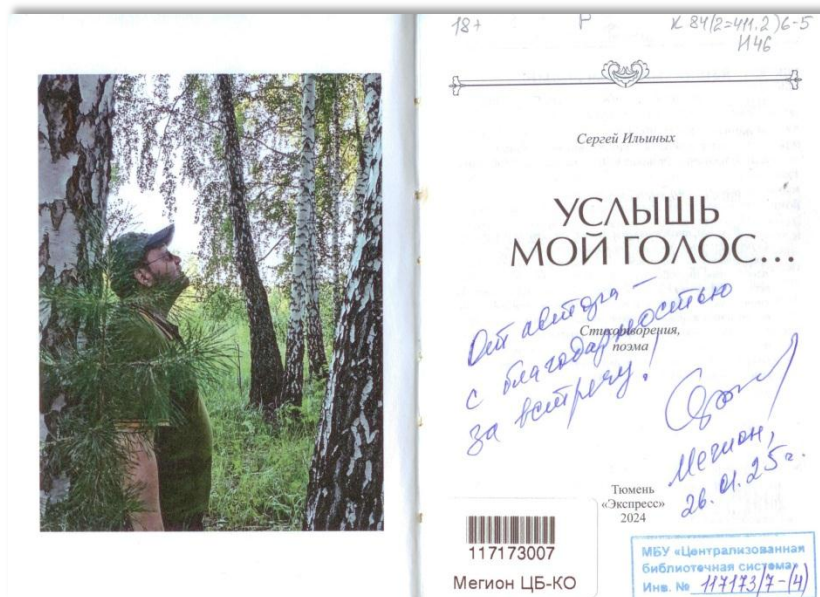 18+
Р
К 84(2=411.2)6-5
И46
Сергей Ильиных
УСЛЫШЬ
МОЙ ГОЛОС...
От автора –
с благодарностью
за встречу!
Стихотворения,
поэма
Мегион,
26.01.25г.
Тюмень
«Экспресс»
2024
117173007
Мегион ЦБ-КО
МБУ «Централизованная
библиотечная система»
Инв. № 117173/7-(4)